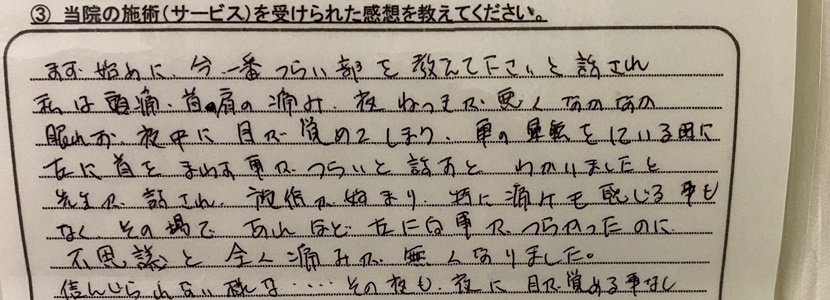 ③ 当院の施術(サービス)を受けられた感想を教えてください。
まず始めに、今、一番つらい部を教えて下さいと話され
私は頭痛、首、肩の痛み、夜ねつきが悪くなかなか
眠れず、夜中に目が覚めてしまう、車の運転をしている時に
右に首をまわす事がつらいと話すと、わかりましたと
先生が話され、施術が始まり、特に痛みも感じる事も
なく、その場で、あれほど、右に向く事が、つらかったのに
不思議と全く痛みが無くなりました。
信んじられない様な……その夜も、夜に目が覚める事なし